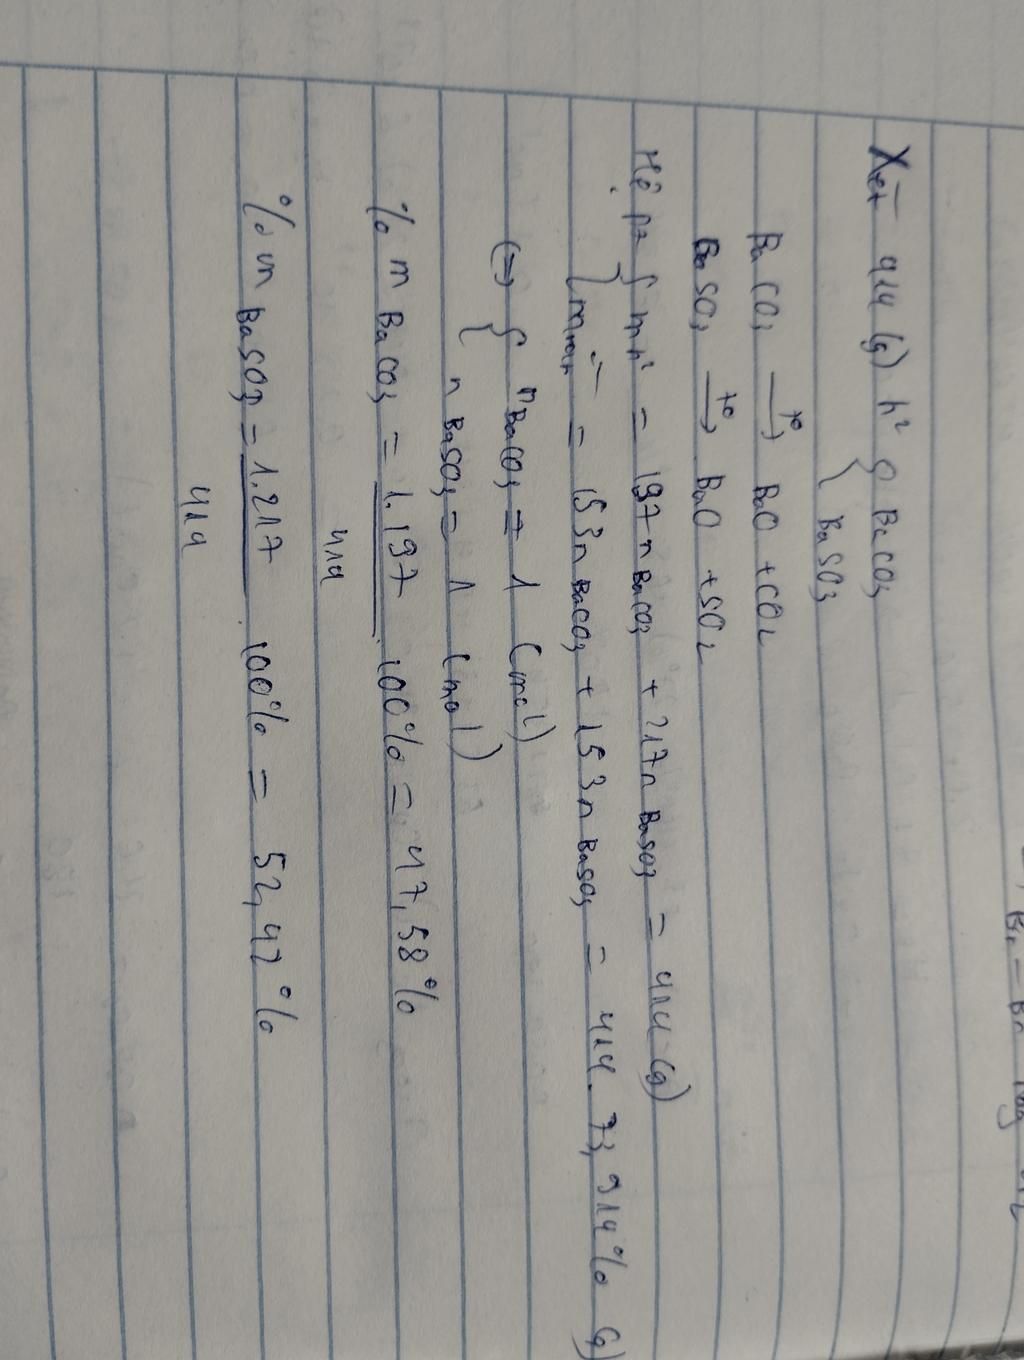 Xét 414 (g) h² { BaCO₃
BaSO₃
BaCO₃ —t°→ BaO + CO₂
BaSO₃ —t°→ BaO + SO₂
Hệ pt { mh² = 197nBaCO₃ + 217nBaSO₃ = 414 (g)
= 153nBaCO₃ + 153nBaSO₃ = 414. 73,914% (g)
(=) { nBaCO₃ = 1 (mol)
nBaSO₃ = 1 (mol)
% m BaCO₃ = 1.197 . 100% = 47,58%
414
% m BaSO₃ = 1.217 . 100% = 52,42%
414